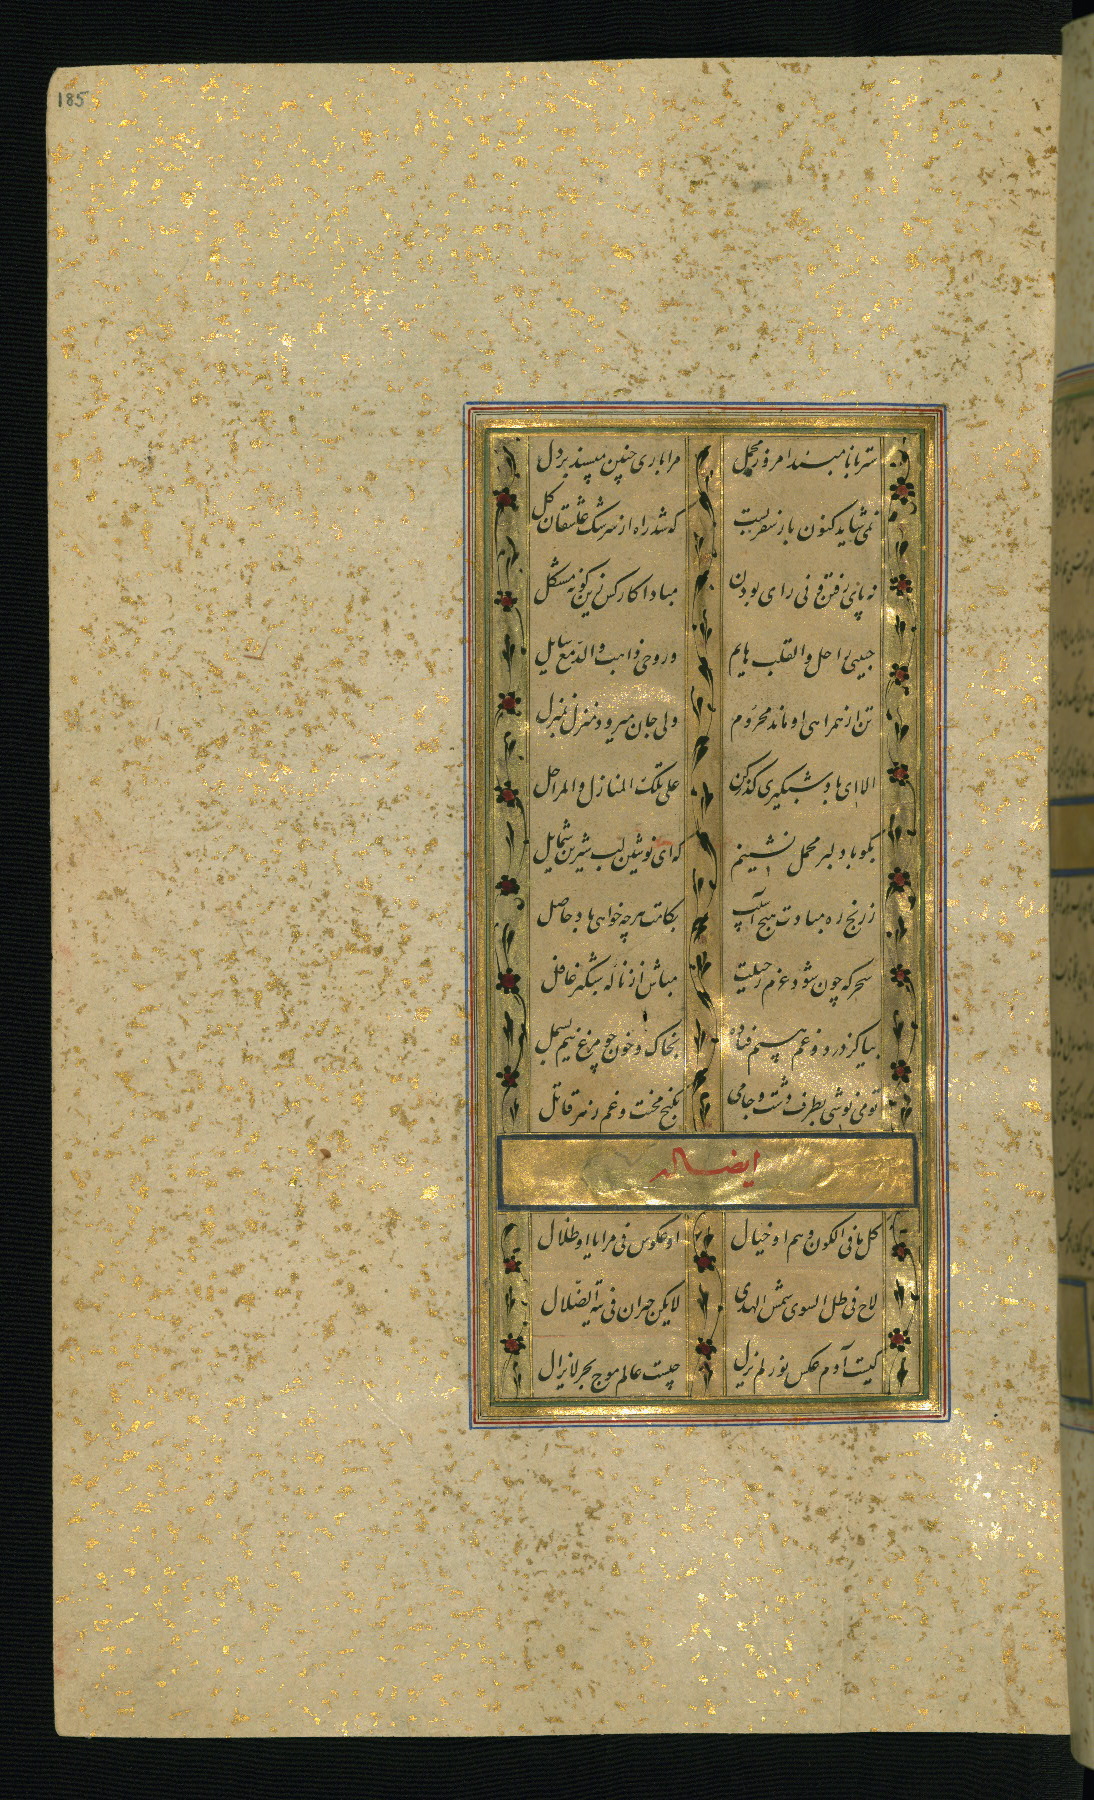 185
شتربانا مبند امروز محمل مرا باری چنین مپسند بر دل
نمی شاید کنون بار سفر بست که شد راه از سرشک عاشقان گل
نه پای رفتن و نی رای بودن مبادا کار کس زین گونه مشکل
حبیبی راحل والقلب هایم وروحی ذاهب والدمع سایل
تن از همراهی او ماند محروم ولی جان میرود منزل بمنزل
الا ای باد شبگیری گذر کن علی تلک المنازل والمراحل
بگو با دلبر محمل نشینم که ای نوشین لب شیرین شمایل
ز رنج ره مبادت هیچ آسیب بکامت هرچه خواهی باد حاصل
سحرگه چون شود عزم رحیلت مباش از ناله شبگیر غافل
بیا کز درد و غم بینم فتاده بخاک و خون چو مرغ نیم بسمل
تو می نوشی بطرف دشت و جامی بکنج محنت و غم زهر قاتل
ایضا له
کل ما فی الکون وهم او خیال او عکوس فی مرایا او ظلال
لاح فی ظل السوی شمس الهدی لا تکن حیران فی تیه الضلال
کیست آدم عکس نور لم یزل چیست عالم موج بحر لا یزال